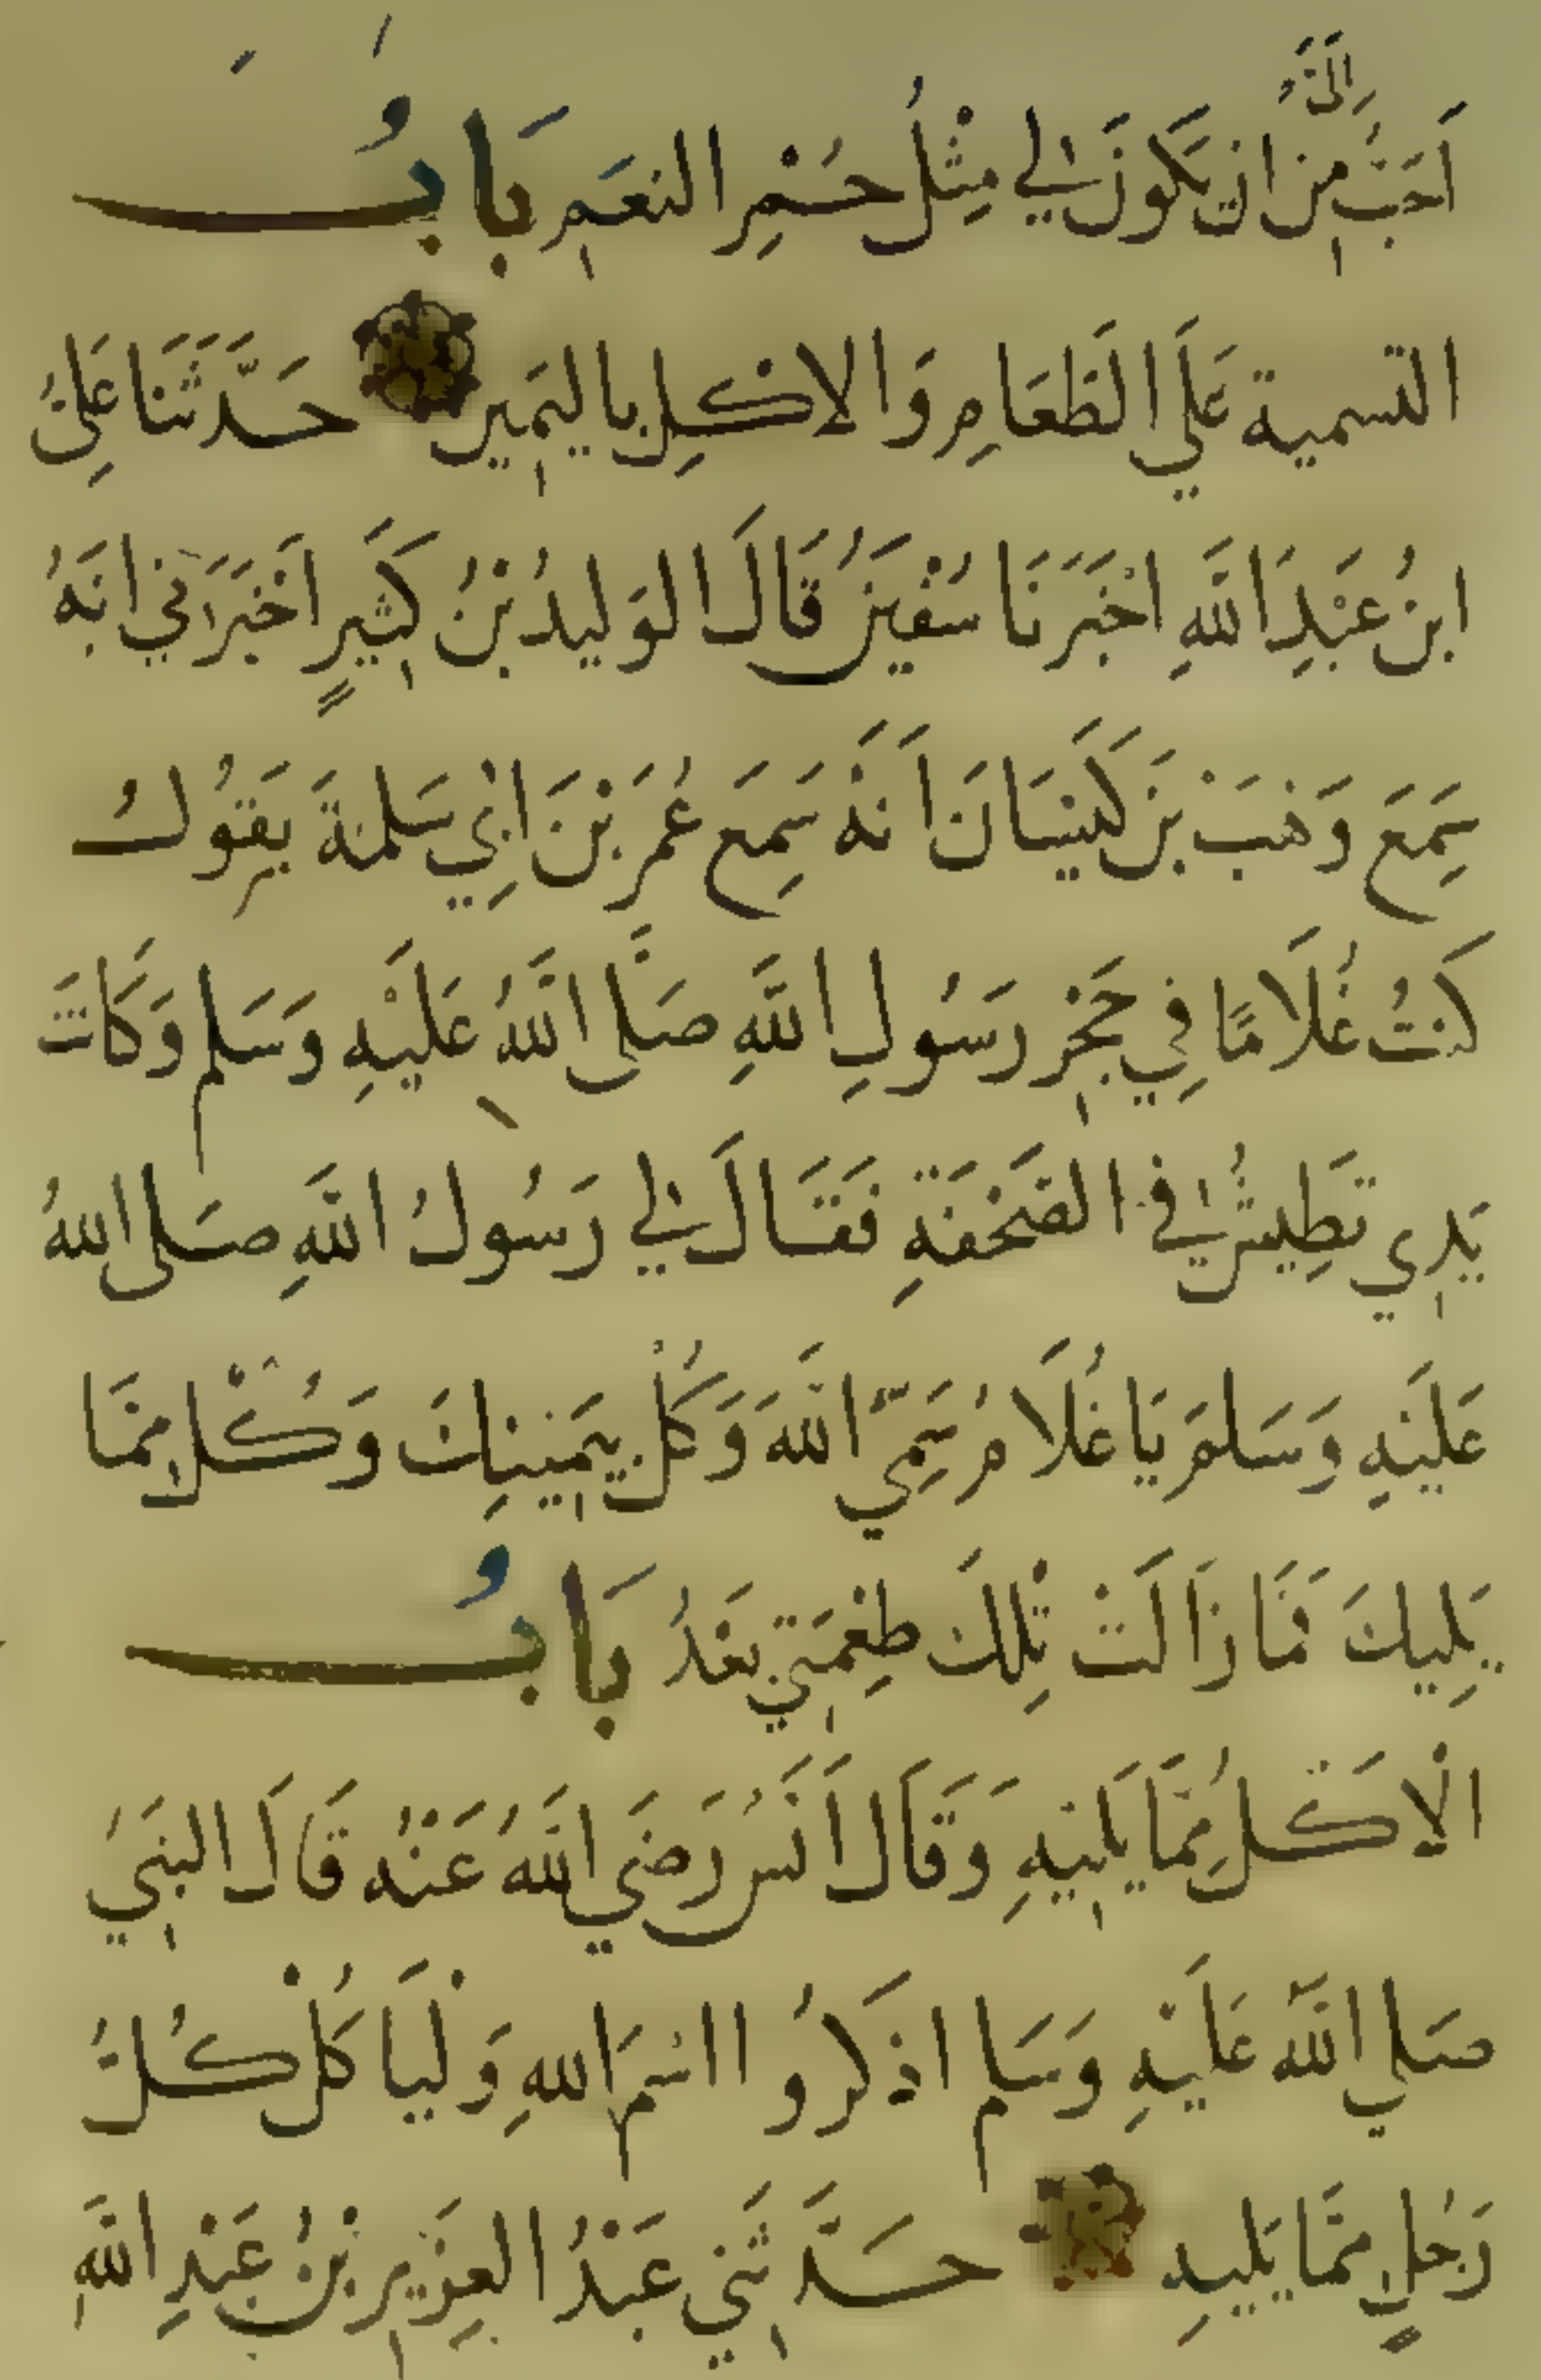 اِلَيَّ
اَحَبُّ مِن ان يَكُونَ لي مِثْلُ حُمْرِ النعَمِ بَابُ
التسمية عَلَي الطَّعَامِ وَالاكْلِ باليَمِين حَدَّثَنَا عَلِيُّ
ابنُ عَبْدِ اللَّهِ اخْبَرَنَا سُفْيَنُ قَالَ الوَلِيدُ بْنُ كَثِيرٍ اَخْبَرَنِي انَهُ
سَمِعَ وَهْبَ بْنَ كَيْسَانَ اَنَهُ سَمِعَ عُمَرَ بْنَ ابِي سَلَمَةَ يَقُولُ
كُنتُ غُلَامًا فِي حَجْرِ رَسُولِ اللَّهِ صَلَّى اللَّهُ عَلَيْهِ وَسَلم وَكَانَتَ
يَدِي تَطِيشُ في الصَحْفَةِ فَقَالَ لي رَسُولُ اللَّهِ صَلى اللهُ
عَلَيْهِ وَسَلمَ يَا غُلَامُ سَمِّي اللَّهَ وَكُلْ بِيَمِينِكَ وَكُلْ مِمَّا
يَلِيكَ فَمَا زَالَتْ تِلْكَ طِعْمَتِي بَعْدُ بَابُ
الْاكَلُ مِمَّا يَلِيهِ وَقَالَ اَنَسُ رَضِيَ اللَّهُ عَنْهُ قَالَ النبِيُ
صَلي اللَّه عَلَيْهِ وَسَلم اذكَرُوا اسْمَ اللهِ وَلْيَاكُلْ كُلُّ
رَجُلٍ مِمَّا يَلِيهِ حَدَّثَنِي عَبْدُ العَزِيزِ بْنُ عَبْدِ اللَّهِ